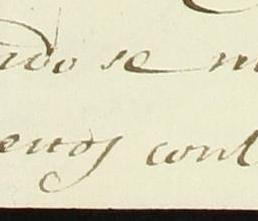 ado se m
enos cont